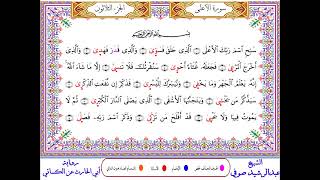 سورة الأعلى
الجزء الثلاثون
بِسْمِ اللَّهِ الرَّحْمَنِ الرَّحِيمِ
سَبِّحِ اسْمَ رَبِّكَ الْأَعْلَى الَّذِي خَلَقَ فَسَوَّى وَالَّذِي قَدَرَ فَهَدَى وَالَّذِي
أَخْرَجَ الْمَرْعَى فَجَعَلَهُ غُثَاءً أَحْوَى سَنُقْرِئُكَ فَلَا تَنسَى إِلَّا مَا شَاءَ اللَّهُ
إِنَّهُ يَعْلَمُ الْجَهْرَ وَمَا يَخْفَى وَنُيَسِّرُكَ لِلْيُسْرَى فَذَكِّرْ إِن نَّفَعَتِ الذِّكْرَى
سَيَذَّكَّرُ مَن يَخْشَى وَيَتَجَنَّبُهَا الْأَشْقَى الَّذِي يَصْلَى النَّارَ الْكُبْرَى ثُمَّ لَا
يَمُوتُ فِيهَا وَلَا يَحْيَى قَدْ أَفْلَحَ مَن تَزَكَّى وَذَكَرَ اسْمَ رَبِّهِ فَصَلَّى
الشيخ
عبدالرشيد صوفي
برواية
أبي الحارث عن الكسائي